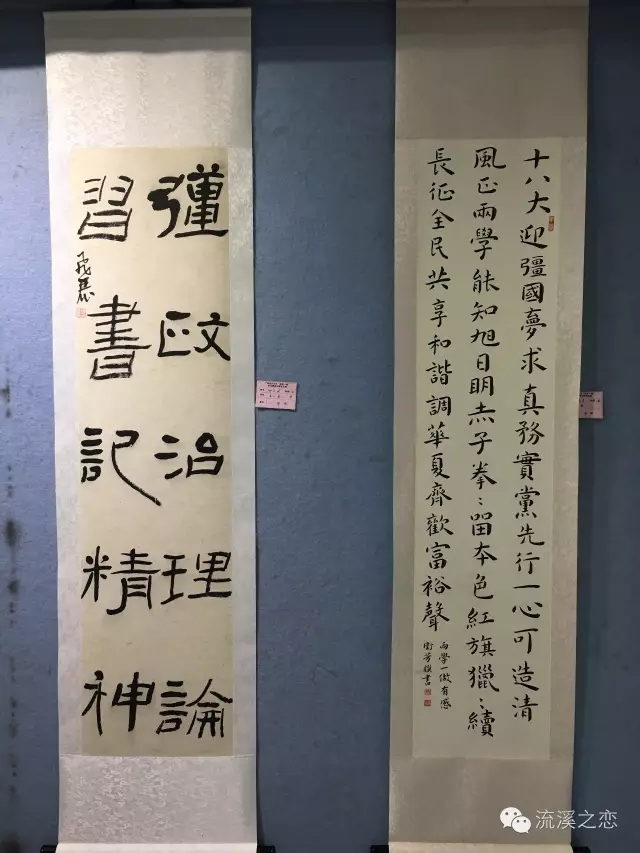 彊政治理論
習書記精神
十八大迎疆國夢求真務實黨先行一心可造清
風正兩學能知旭日明赤子拳〻留本色紅旗獵〻續
長征全民共享和諧調華夏齊歡富裕聲
兩學一做有感
衛芳撰書
流溪之恋